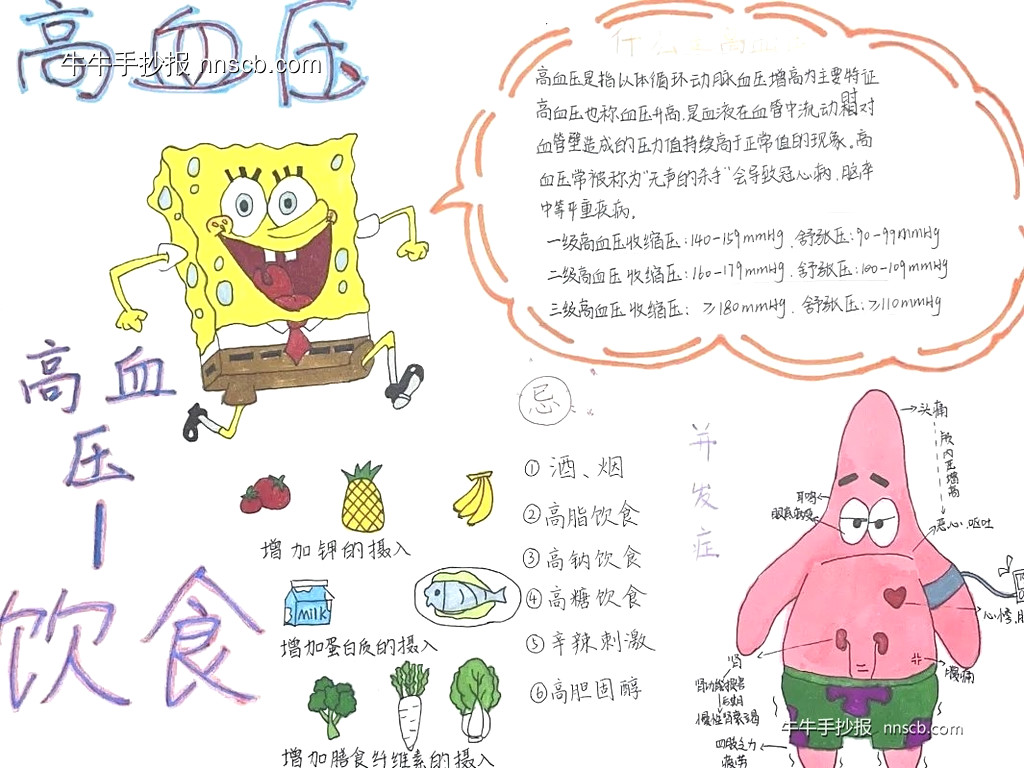 高血压
牛牛手抄报 nnscb.com
什么是高血压
高血压是指以体循环动脉血压增高为主要特征
高血压也称血压升高,是血液在血管中流动时对
血管壁造成的压力值持续高于正常值的现象。高
血压常被称为“无声的杀手”会导致冠心病,脑卒
中等严重疾病。
一级高血压收缩压:140-159mmHg.舒张压:90-99mmHg
二级高血压收缩压:160-179mmHg.舒张压:100-109mmHg
三级高血压收缩压: ≥180mmHg.舒张压:≥110mmHg
高血
压
饮食
增加钾的摄入
MILK
增加蛋白质的摄入
增加膳食纤维素的摄入
忌
①酒、烟
②高脂饮食
③高钠饮食
④高糖饮食
⑤辛辣刺激
⑥高胆固醇
并发症
头痛
颅内压增高
恶心.呕吐
耳鸣
眼底病变
心悸
腹痛
肾
肾功能损害
后期
慢性肾衰竭
四肢乏力
疲劳
牛牛手抄报 nnscb.com